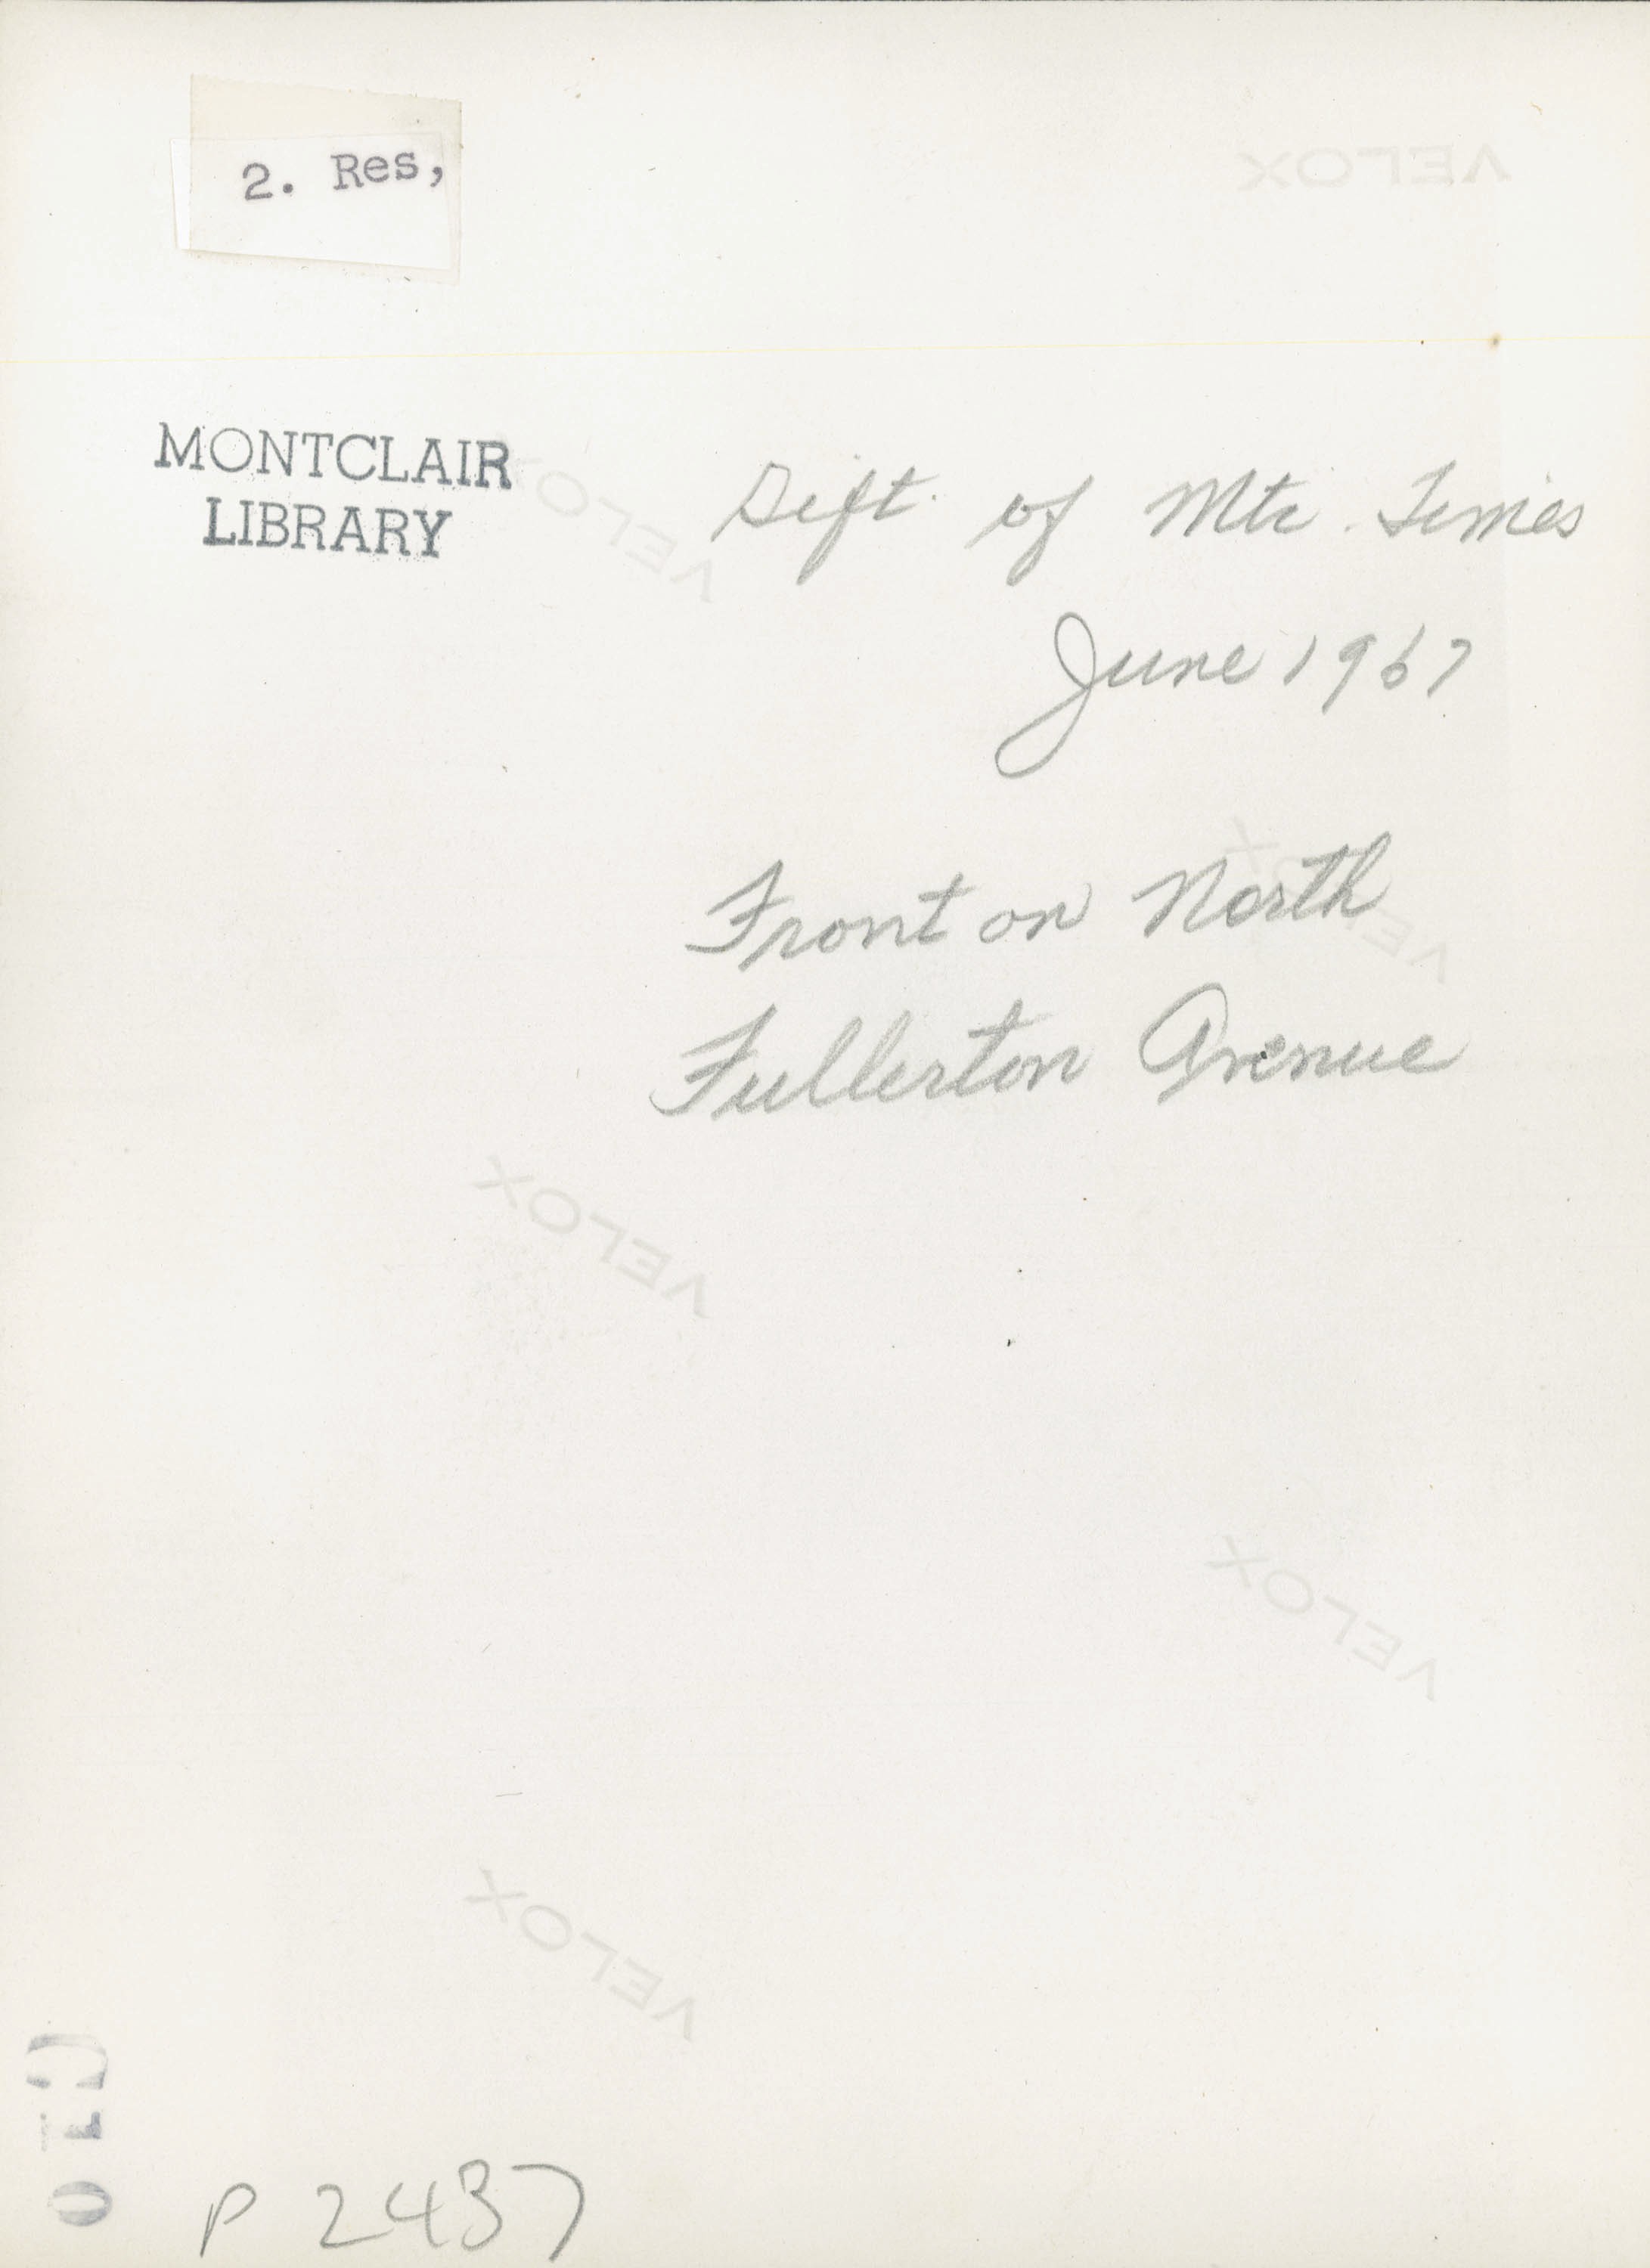 2. Res,
VELOX
MONTCLAIR
LIBRARY
VELOX
Gift of Mtc. Times
June 1967
Front on North
Fullerton Avenue
VELOX
VELOX
VELOX
VELOX
P 2437